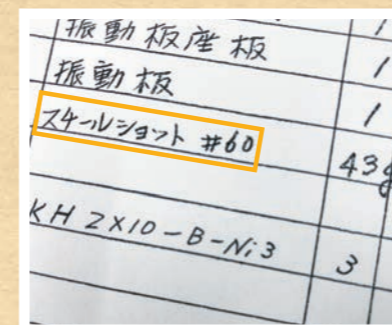 振動板座板 1
振動板 1
スチールショット #60 43g
KH 2X10-B-Ni3 3